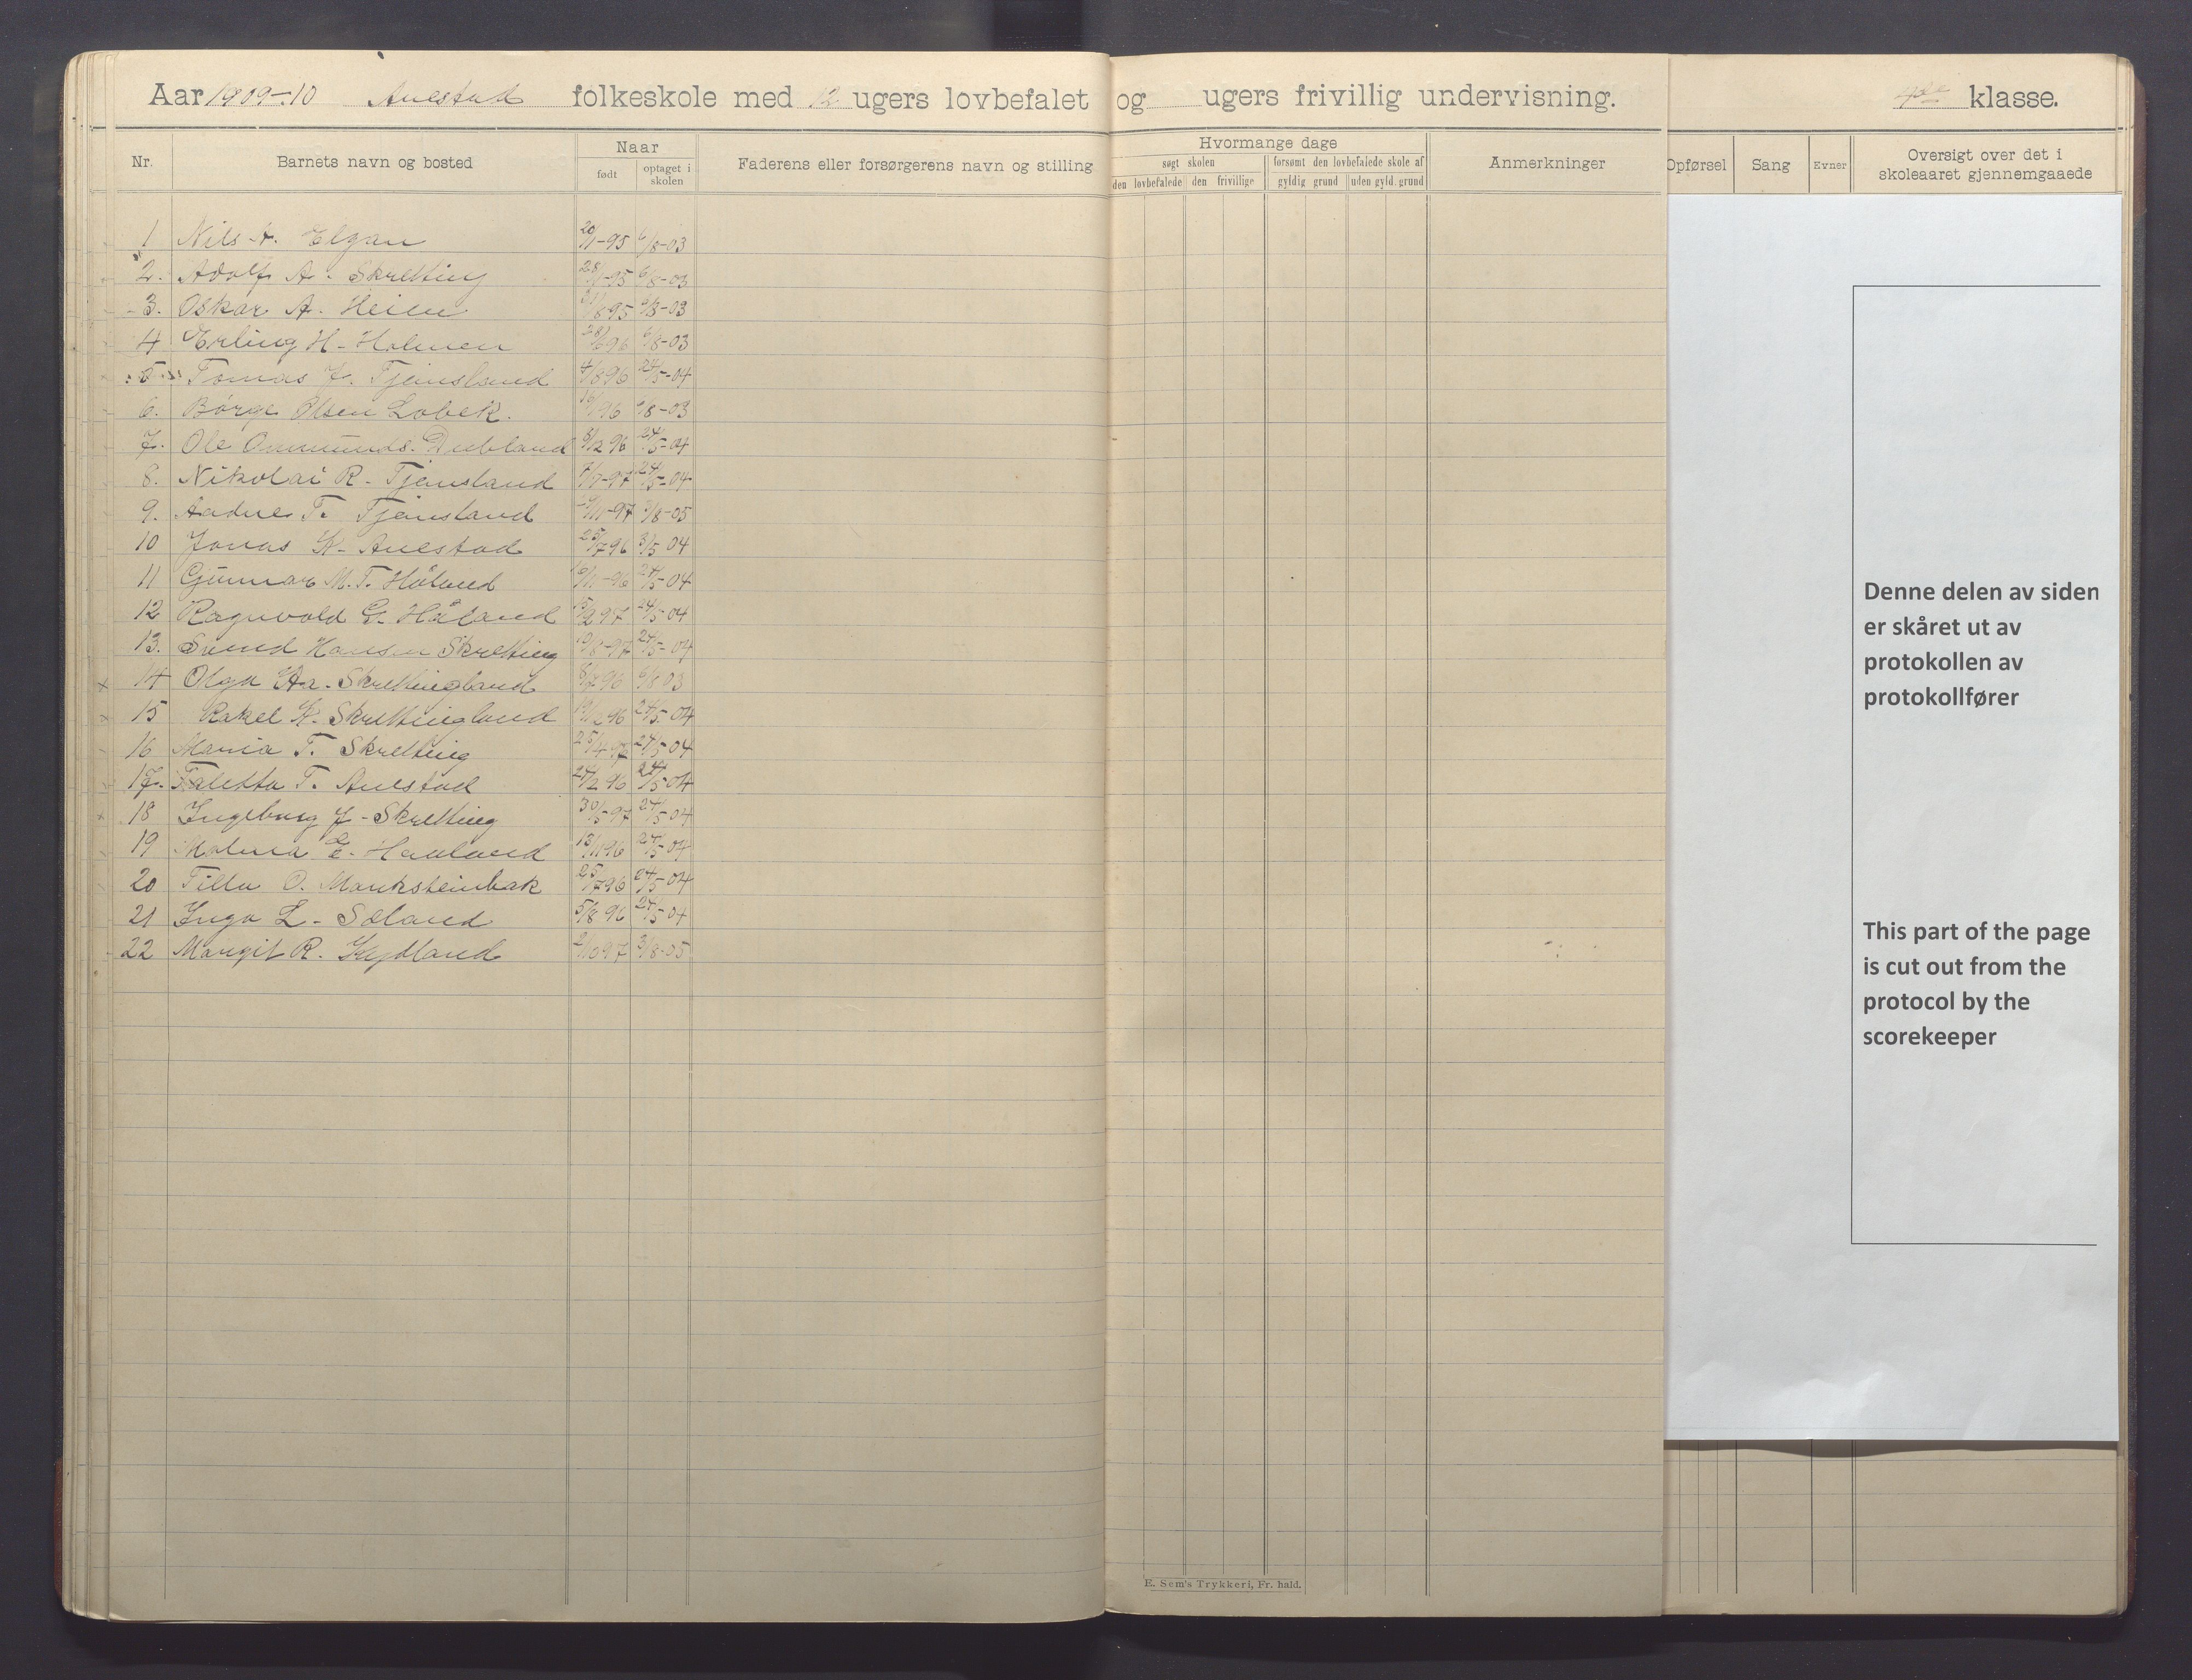 Aar 1909-10 Auestad folkeskole med 12 ugers lovbefalet og ugers frivillig undervisning. klasse.
Nr. Barnets navn og bosted Naar Faderens eller forsørgerens navn og stilling Hvormange dage Anmerkninger Opførsel Sang Evner Oversigt over det i skoleaaret gjennemgaaede
født optaget i skolen søgt skolen forsømt den lovbefalede skole af
den lovbefalede den frivillige gyldig grund uden gyld. grund
1 Nils A. Elgan 20/1-95 6/8-03
2. Adolf A. Skretting 28/1-95 6/8-03
3. Oskar A. Heien 6/8-03
4 Erling H. Holmen 6/8-03
5. Tomas J. Tjensland 4/8 96 24/5-04
6. Børge Olsen Lobek. 6/8-03
7. Ole Ommunds. Dubland 8/12 96 24/5-04
8. Nikolai R. Tjensland 7/7-97 24/5-04
9. Aadne T. Tjensland /11-97 3/8-05
10 Jonas K. Auestad 25/7 96 3/5 04
11 Gunnar M. T. Håland 24/5-04
12 Ragnvald G. Håland 15/2 97 24/5-04
13. Svend Hansen Skretting 24/5-04
14 Olga Aa. Skrettingland 8/7 96 6/8 03
15 Rakel K. Skrettingland 24/5-04
16 Maria T. Skretting 25/4 97 24/5-04
17. Taletta T. Auestad 24/2 96 24/5-04
18 Ingeborg J. Skretting 30/5-97 24/5-04
19 Malena E. Haaland 13/11 96 24/5-04
20 Tilla O. Marksteinbak 25/7 96 24/5-04
21 Inga L. Sæland 5/8 96 24/5-04
22 Margit R. Kydland 2/10 97 3/8-05
Denne delen av siden
er skåret ut av
protokollen av
protokollfører
This part of the page
is cut out from the
protocol by the
scorekeeper
E. Sem's Trykkeri, Fr. hald.